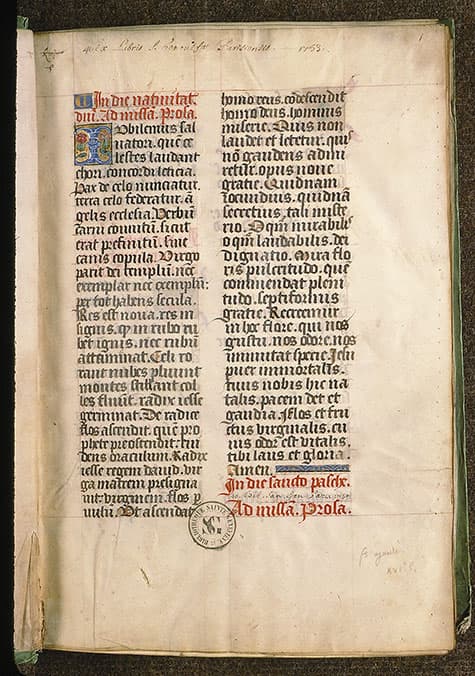 Ex Libris S. Genovefae Parisiensis 1753.
In die natiuitat.
dni. Ad missā. Prola.
Jubilemus sal
uatori. que ce
lestes laudant
chori. concordi leticia.
Pax de celo nunciatur.
terra celo federatur. ā
gelis ecclesia. Verbū
carni coniunctū. sicut
erat prefinitū. sine
carnis copula. Virgo
parit dei templū. nec
exemplar nec exemplū:
per tot habens secula.
Res est noua. res in
signis. q̄ in rubo ru
bet ignis. nec rubū
attuminat. Celi ro
rant nubes pluunt
montes stillant col
les fluūt. radix iesse
germinat. De radice
flos ascendit. quē pro
phete preostendit. eui
dens oraculum. Radix
iesse regem dauid. vir
ga matrem presigna
uit. virginem. flos p
uulū. Et ascendat
homo deus. cōdescendit
homo deus. hominis
miserie. Quis non
laudet et letetur. quis
nō gaudens admi
retur. opus noue
gratie. Quidnam
iocundius. quidnā
secretius. tali miste
rio. O qm̄ mirabilis
o qm̄ laudabilis. dei
dignatio. Mira flo
ris pulcritudo. quē
commendat pleni
tudo. septiformis
gratie. Recreemur
in hoc flore. qui nos
gustu. nos odore. nos
inuitat specie. Jesu
puer immortalis.
tuus nobis hic na
talis. pacem det et
gaudia. Flos et fru
ctus virginalis. cu
ius odor est vitalis.
tibi laus et gloria.
Amen.
In die sancto pasche.
Ad missā. Prosa.
BIBLIOTHEQUE SAINTE GENEVIEVE
SG